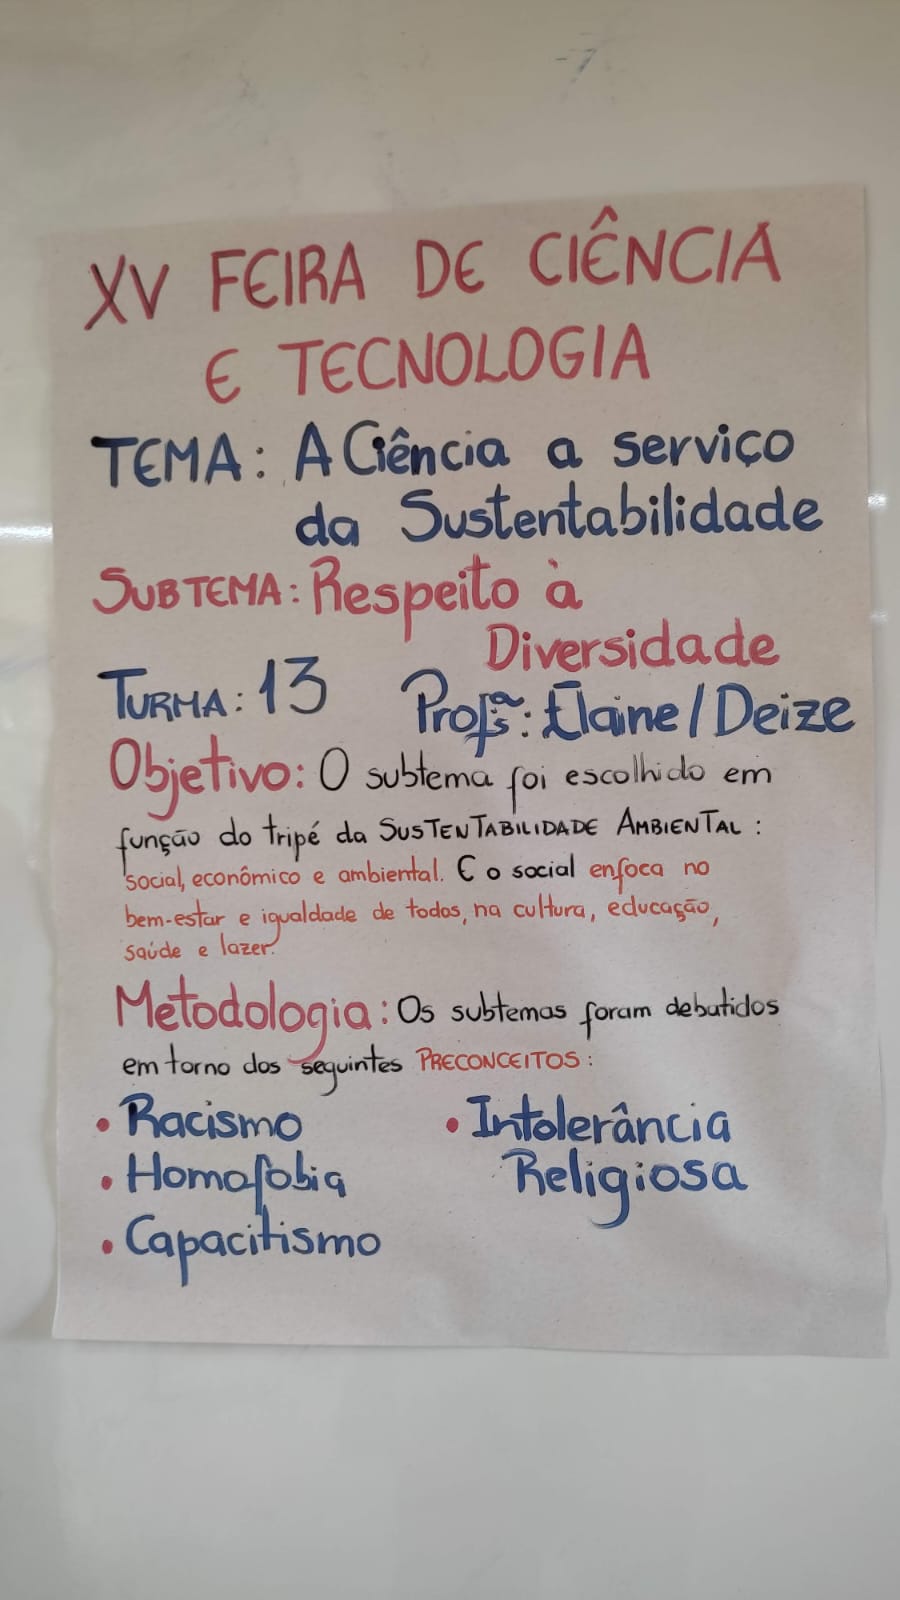 XV FEIRA DE CIÊNCIA
E TECNOLOGIA
TEMA: A Ciência a serviço
da Sustentabilidade
SUBTEMA: Respeito à
Diversidade
TURMA: 13 Profªs: Elaine/Deize
Objetivo: O subtema foi escolhido em
função do tripé da SUSTENTABILIDADE AMBIENTAL:
social, econômico e ambiental. E o social enfoca no
bem-estar e igualdade de todos, na cultura, educação,
saúde e lazer.
Metodologia: Os subtemas foram debatidos
em torno dos seguintes PRECONCEITOS:
• Racismo
• Homofobia
• Capacitismo
• Intolerância
Religiosa